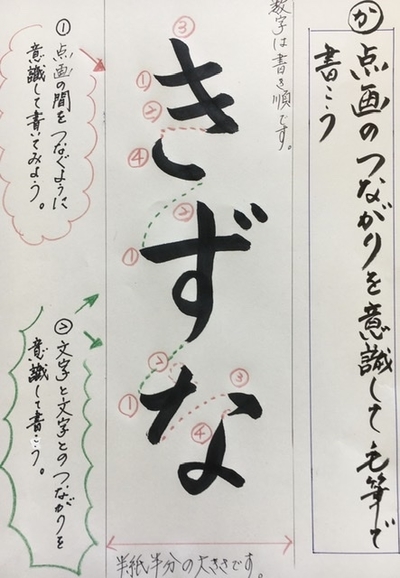 か
点画のつながりを意識して毛筆で
書こう
数字は書き順です。
③
①
②
きずな
④
②
①
②
③
①
④
半紙半分の大きさです。
①
点画の間をつなぐように
意識して書いてみよう。
②文字と文字とのつながりを
意識して書こう。